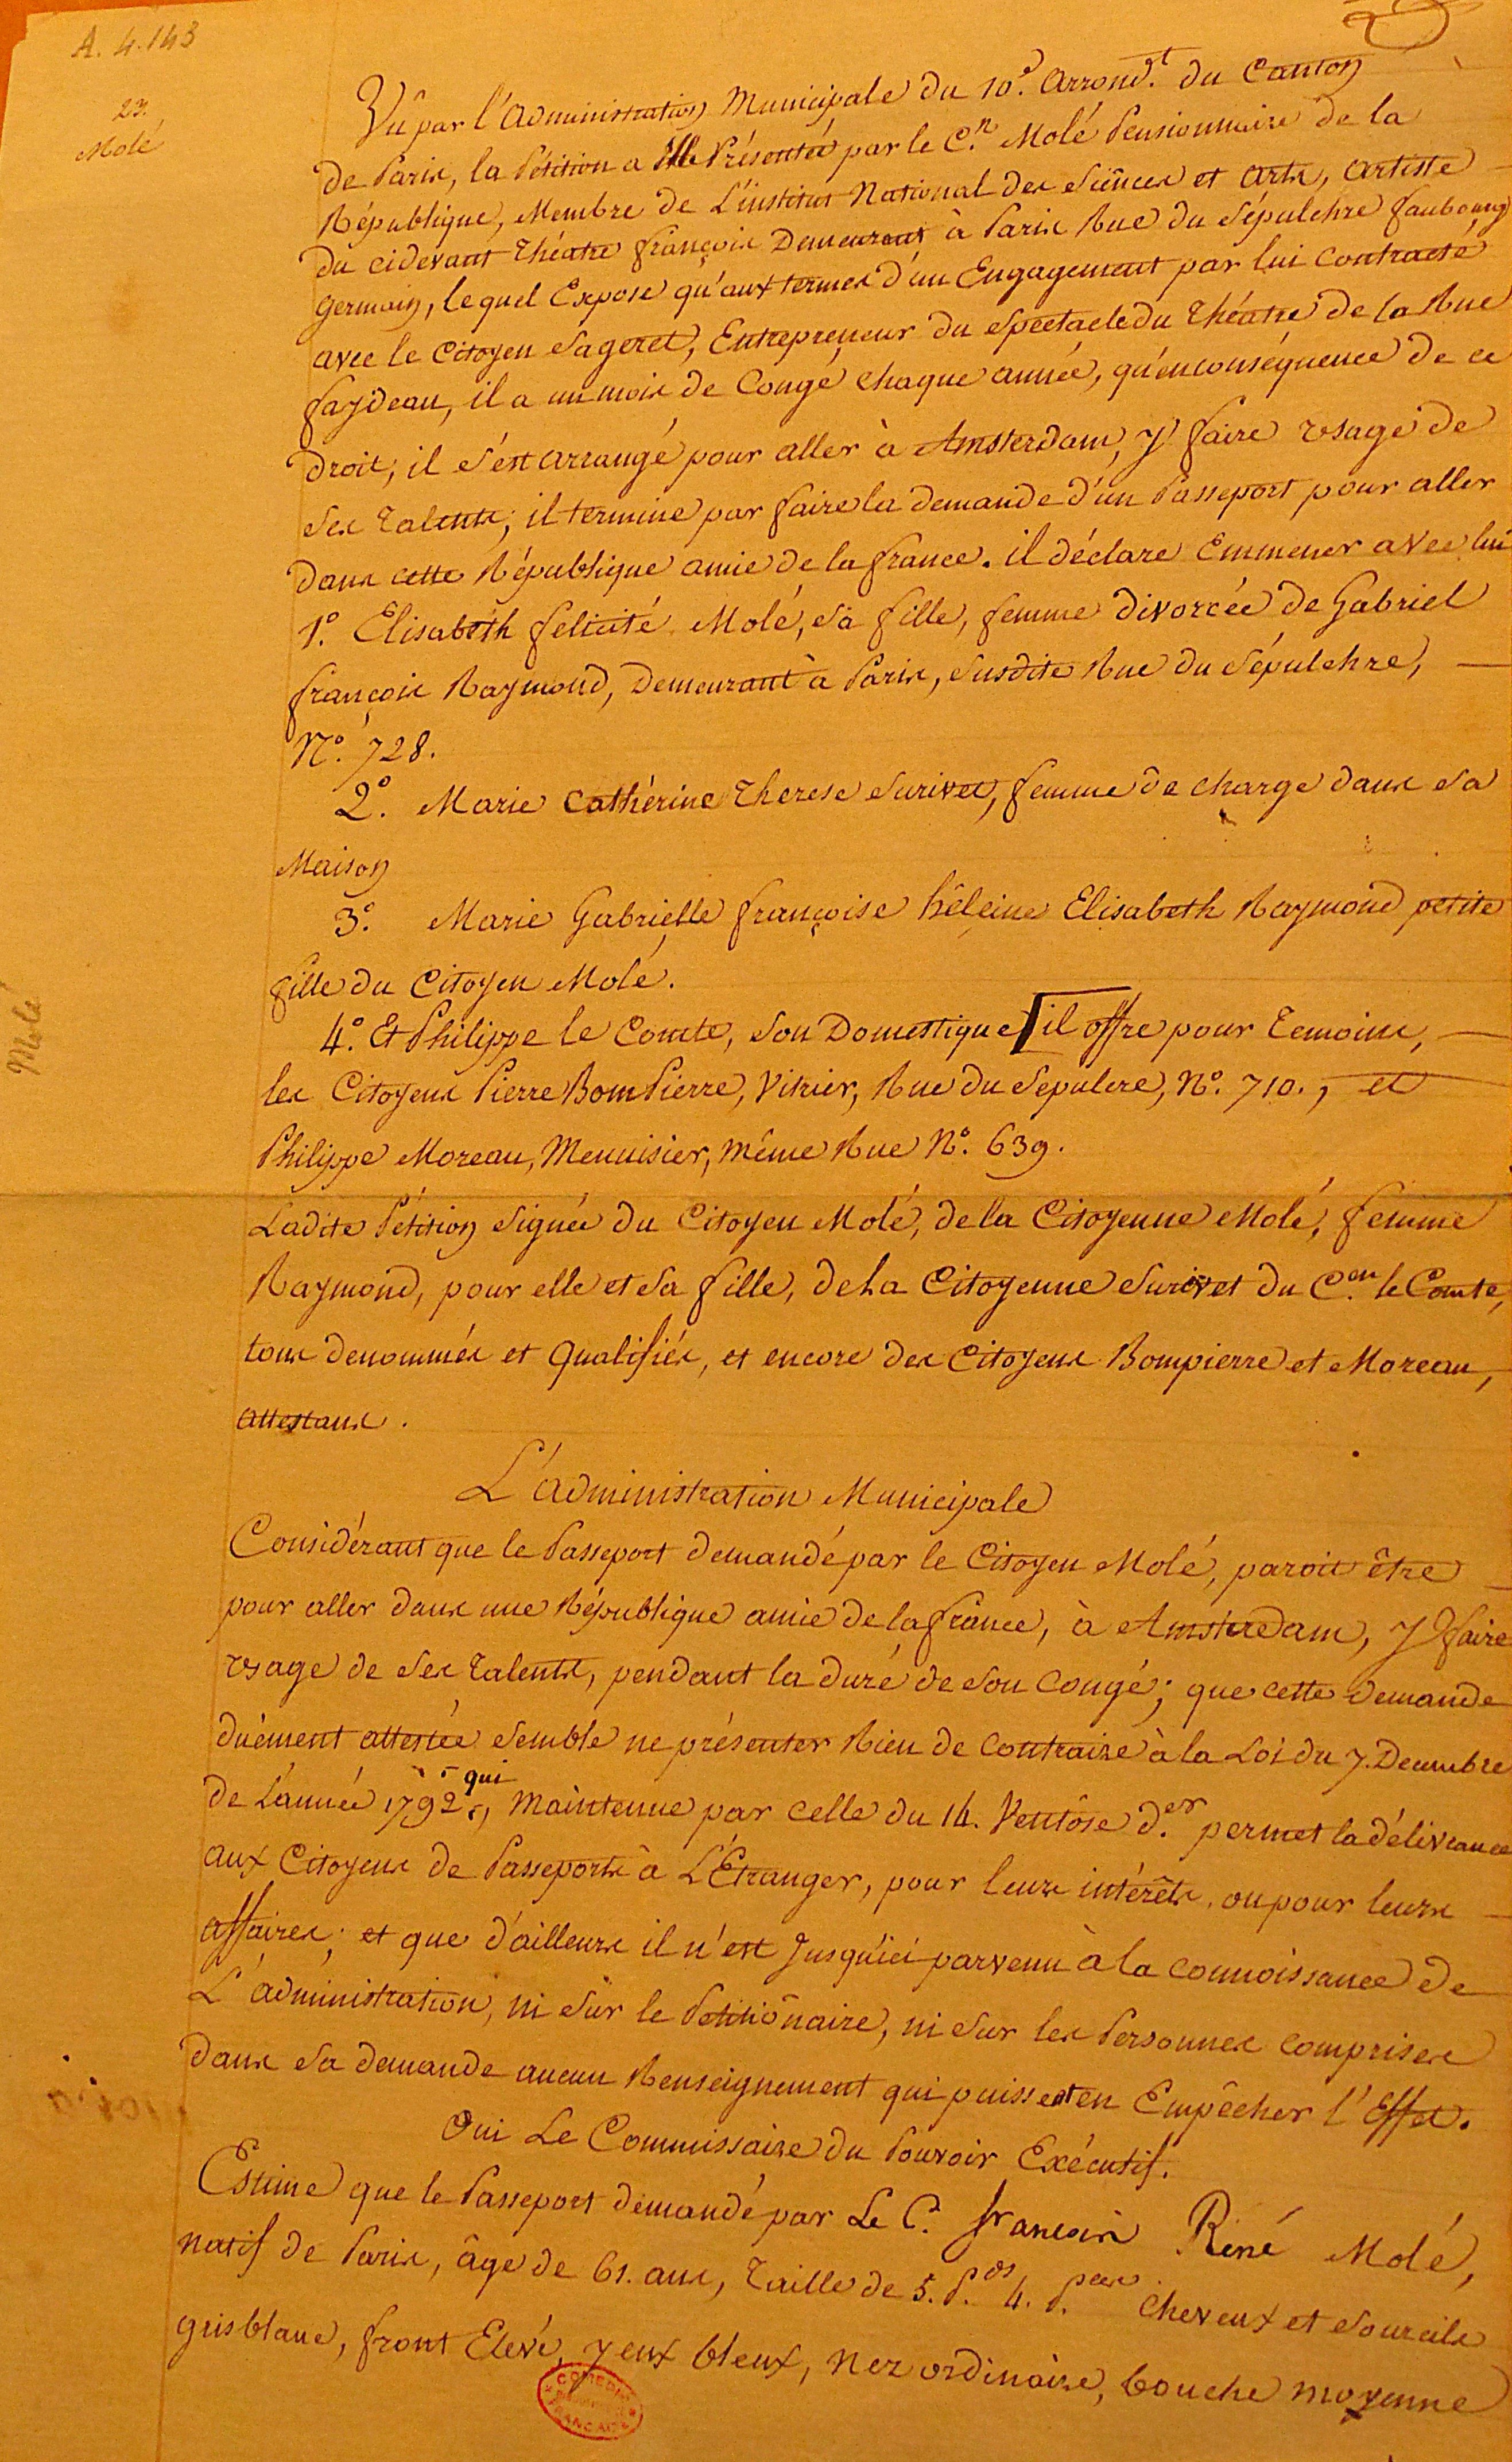 A. 4. 143
23.
Molé
Vû par l'administration Municipale du 10e. Arrondt. du Canton
de Paris, la Pétition a Elle Présentée par le Cn. Molé Pensionnaire de la
République, Membre de L'institut National des Siênces et Arts, Artiste
du cidevant Théatre françois Demeurant à Paris Rue du Sépulchre faubourg
Germain, lequel Expose qu'aux termes d'un Engagement par lui contracté
avec le Citoyen Sageret, Entrepreneur du Spectacle du Théatre de la Rue
faydeau, il a un mois de Congé chaque année, qu'en conséquence de ce
droit, il s'est arrangé pour aller à Amsterdam, y faire usage de
ses Talents; il termine par faire la demande d'un Passeport pour aller
dans cette République amie de la france. il déclare Emmener avec lui
1°. Elisabeth félicité Molé, sa fille, femme divorcée de Gabriel
françois Raymond, Demeurant à Paris, susdite Rue du Sépulchre,
N°. 728.
2°. Marie Cathérine Therese Surivet, femme de charge dans sa
Maison
3°. Marie Gabrielle françoise hêleine Elisabeth Raymond petite
fille du Citoyen Molé.
4°. Et Philippe le Comte, son Domestique il offre pour Temoins,
les Citoyens Pierre BomPierre, Vitrier, Rue du Sepulcre, N°. 710., et
Philippe Moreau, Menuisier, même Rue N°. 639.
Molé
Ladite Pétition Signée du Citoyen Molé, de la Citoyenne Molé, femme
Raymond, pour elle et sa fille, de La Citoyenne Surivet du Cen. le Comte,
tous denommés et Qualifiés, et encore des Citoyens Bompierre et Moreau,
attestans.
L'administration Municipale
Considérant que le Passeport demandé par le Citoyen Molé, paroit être
pour aller dans une République amie de la france, à Amsterdam, y faire
usage de ses Talents, pendant la duré de son Congé; que cette demande
duëment attestée semble ne présenter Rien de Contraire à la Loi du 7. Decembre
de L'année 1792 qui, Maintenue par celle du 14. Ventôse der. permet la délivrance
aux Citoyens de Passeports à L'Etranger, pour leurs intérêts, ou pour leurs
affaires; et que d'ailleurs il n'est Jusqu'ici parvenu à la connoissance de
L'administration, ni sur le Petitiônaire, ni sur les Personnes comprises
dans sa demande aucun Renseignement qui puisse en Empêcher l'Effet.
Oui Le Commissaire du Pouvoir Exécutif.
Estime que le Passeport demandé par Le C. françois René Molé,
natif de Paris, âge de 61. ans, Taille de 5. Pds. 4. Pces. Cheveux et Sourcils
gris blanc, front Elevé, yeux bleux, nez ordinaire, bouche moyenne
COMEDIE FRANCAISE